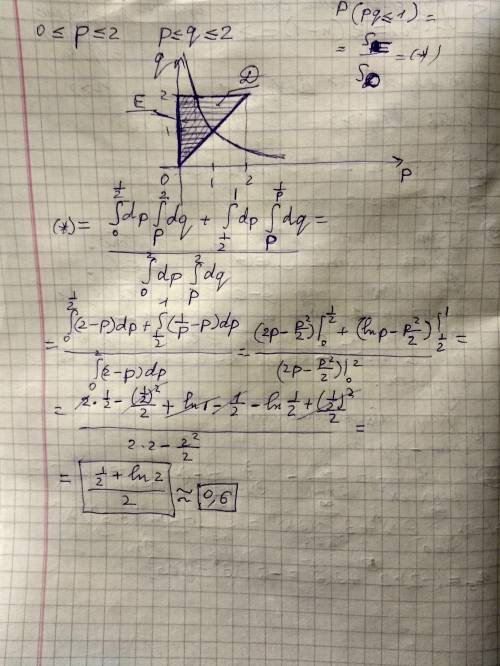 0 ≤ p ≤ 2   p ≤ q ≤ 2
P(pq ≤ 1) =
= S_E / S_D = (*)
q
D
E
2
1
0 1 2 p
(*) = (∫_0^{1/2} dp ∫_p^2 dq + ∫_{1/2}^1 dp ∫_p^{1/p} dq) / (∫_0^2 dp ∫_p^2 dq) =
= (∫_0^{1/2} (2-p)dp + ∫_{1/2}^1 (1/p - p)dp) / (∫_0^2 (2-p)dp) = ((2p - p²/2)|_0^{1/2} + (ln p - p²/2)|_{1/2}^1) / ((2p - p²/2)|_0^2) =
= (2·1/2 - (1/2)²/2 + ln 1 - 1/2 - ln 1/2 + (1/2)²/2) / (2·2 - 2²/2) =
= (1/2 + ln 2) / 2 ≈ 0,6